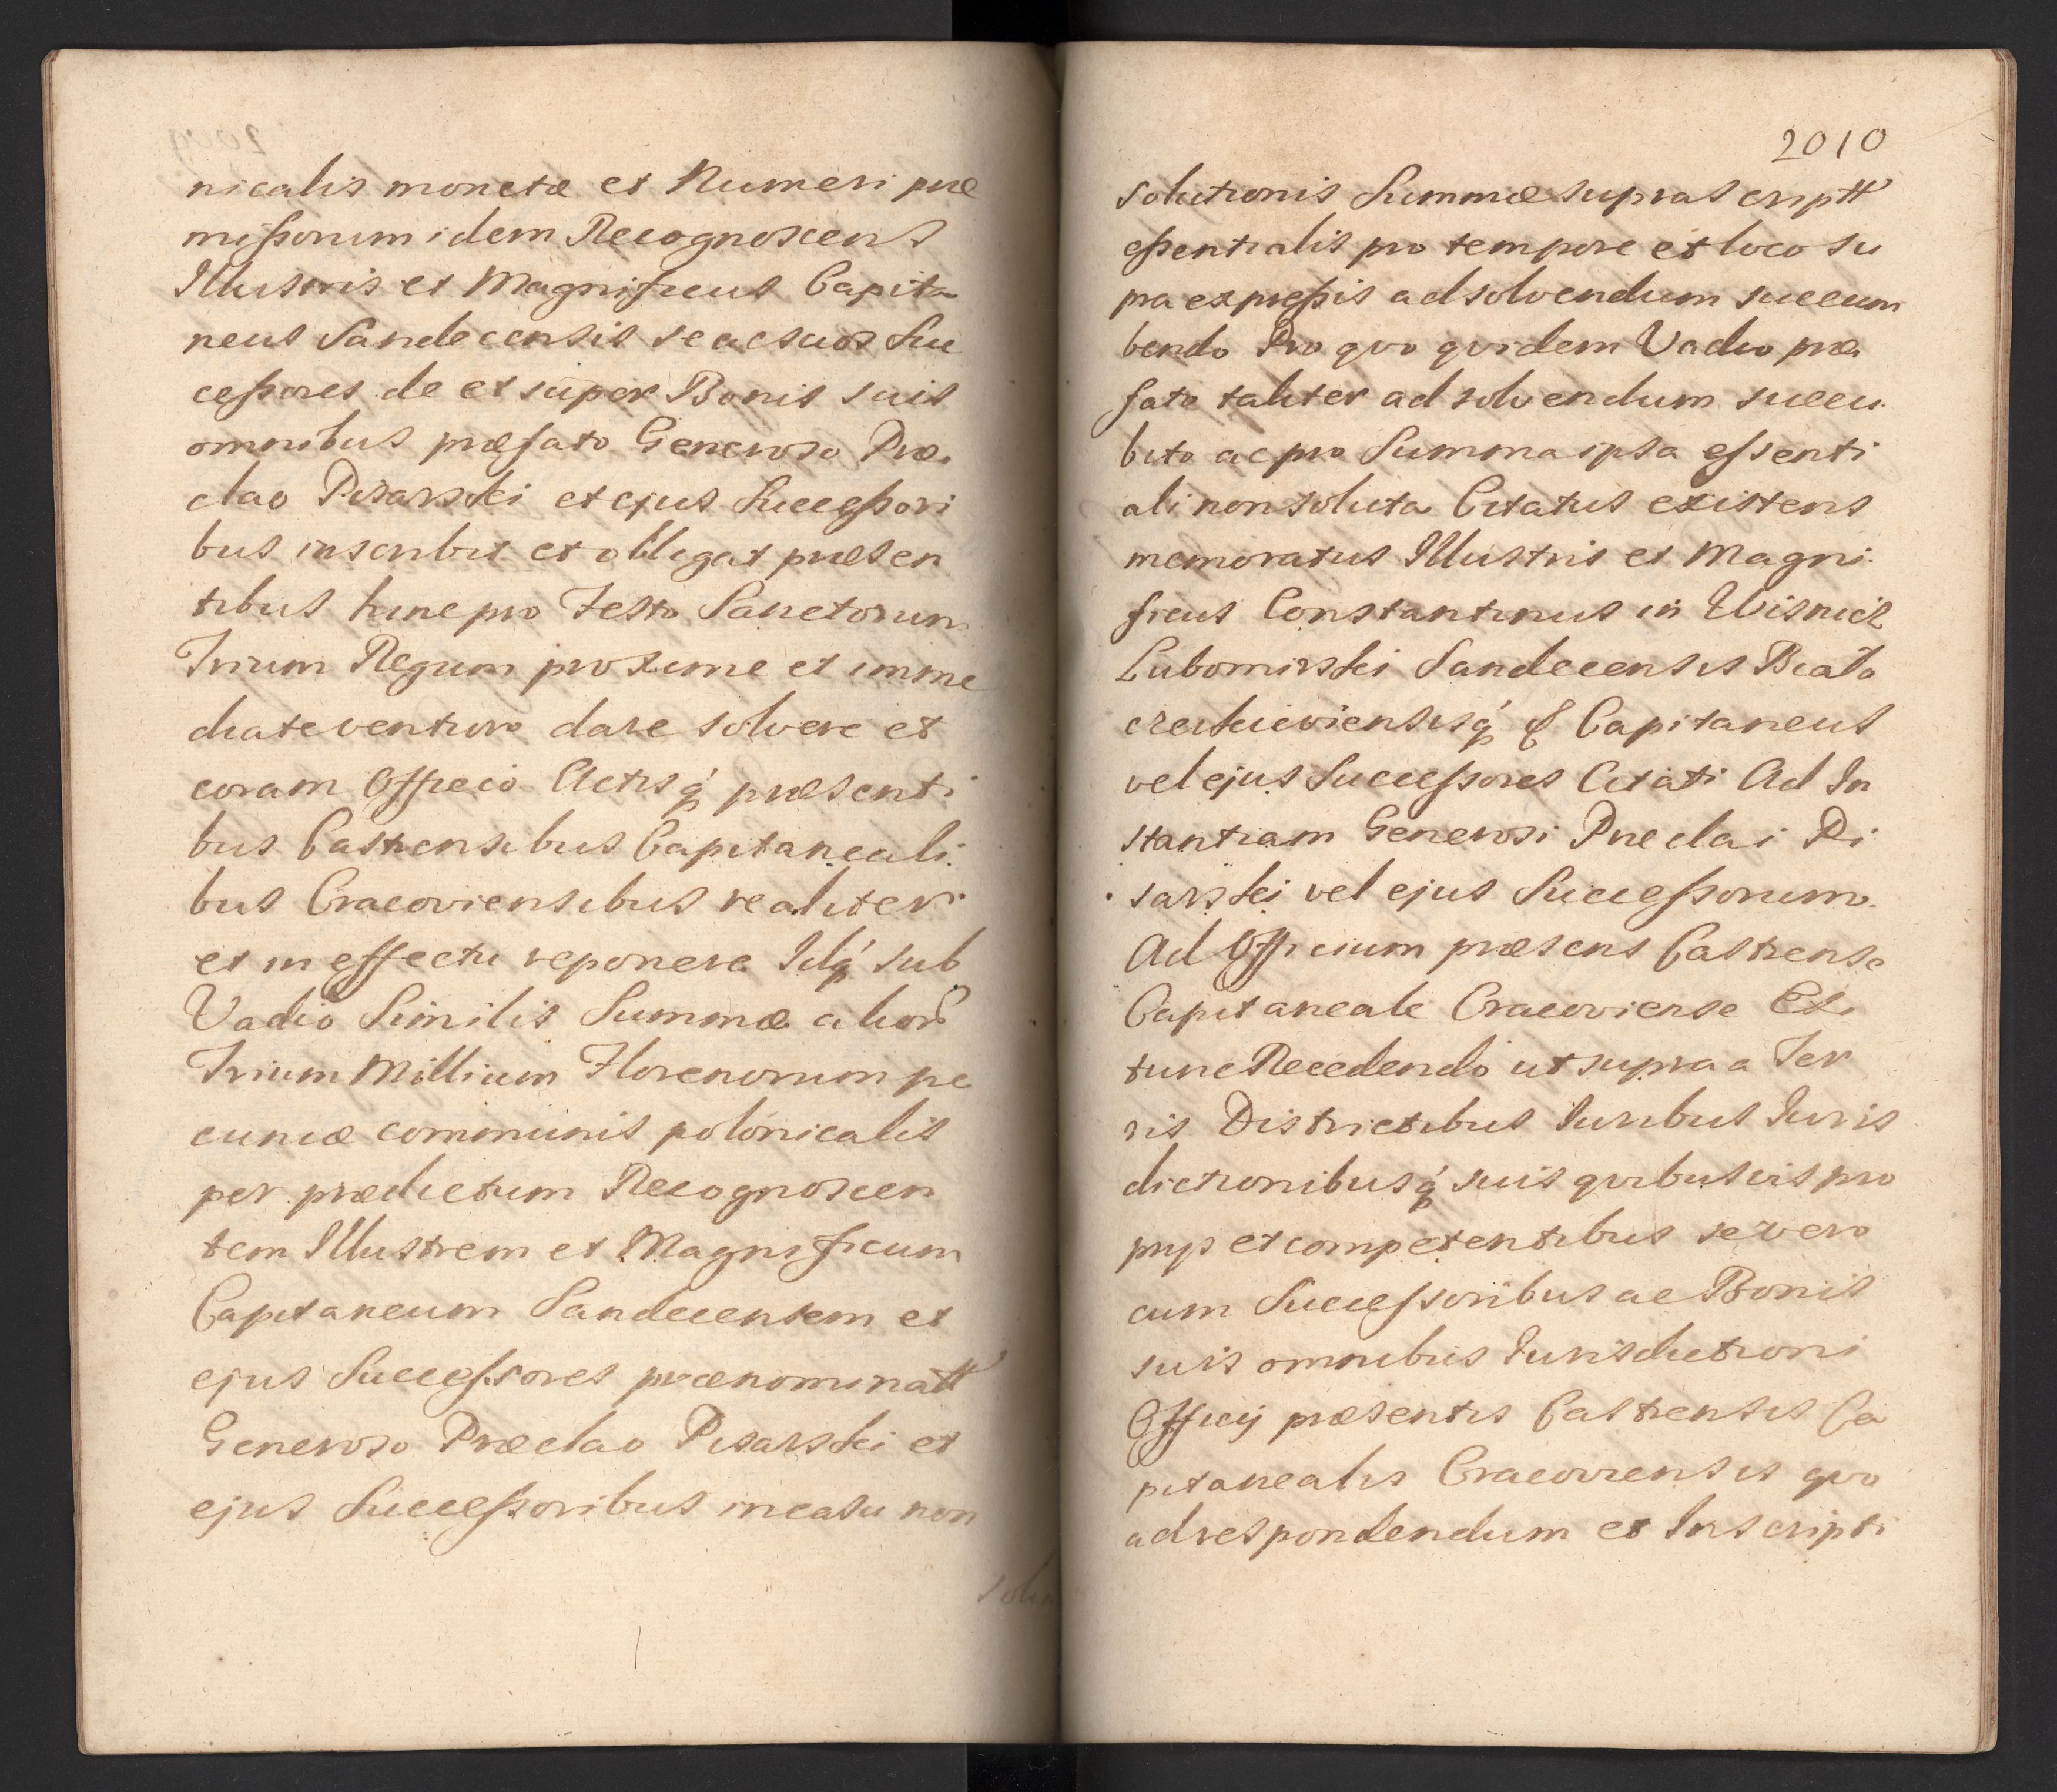 nicalis monetæ et Numeri præ
mißorum idem Recognoscens
Illustris et Magnificus Capita
neus Sandecensis se ac suos Suc
ceßores de et super Bonis suis
omnibus præfato Generoso Præ
clao Pisarski et ejus Succeßori
bus inscribit et obligat præsen
tibus hinc pro Festo Sanctorum
Trium Regum proxime et imme
diate venturo dare solvere et
coram Officio Actisq́ præsenti
bus Castrensibus Capitaneali
bus Cracoviensibus realiter
et in effectu reponere Idq́ sub
Vadio Similis Summæ alior
Trium Millium Florenorum pe
cuniæ communis polonicalis
per prædictum Recognoscen
tem Illustrem et Magnificum
Capitaneum Sandecensem et
ejus Successores prænominatt
Generoso Præclao Pisarski et
ejus Succeßoribus in casu non
solu
2010
solutionis Summæ suprascriptt
eßentialis pro tempore et loco su
pra expreßis ad solvendum succum
bendo Pro qvo qvidem Vadio præ
fato taliter ad solvendum succu
bito ac pro Summa ipsa essenti
ali non soluta Citatus existens
memoratus Illustris et Magni
ficus Constantinus in Wisnicz
Lubomirski Sandecensis Biało
cerkieviensisq́ & Capitaneus
vel ejus Successores Citati Ad In
stantiam Generosi Præclai Pi
sarski vel ejus Successorum
Ad Officium præsens Castrense
Capitaneale Cracoviense Ex
tunc Recedendo ut supra a Ter
ris Districtibus Iuribus Iuris
dictionibusq́ suis qvibusvis pro
prys et competentibus se vero
cum Successoribus ac Bonis
suis omnibus Iurisdictioni
Officij præsentis Castrensis Ca
pitanealis Cracoviensis qvo
ad respondendum et Inscripti